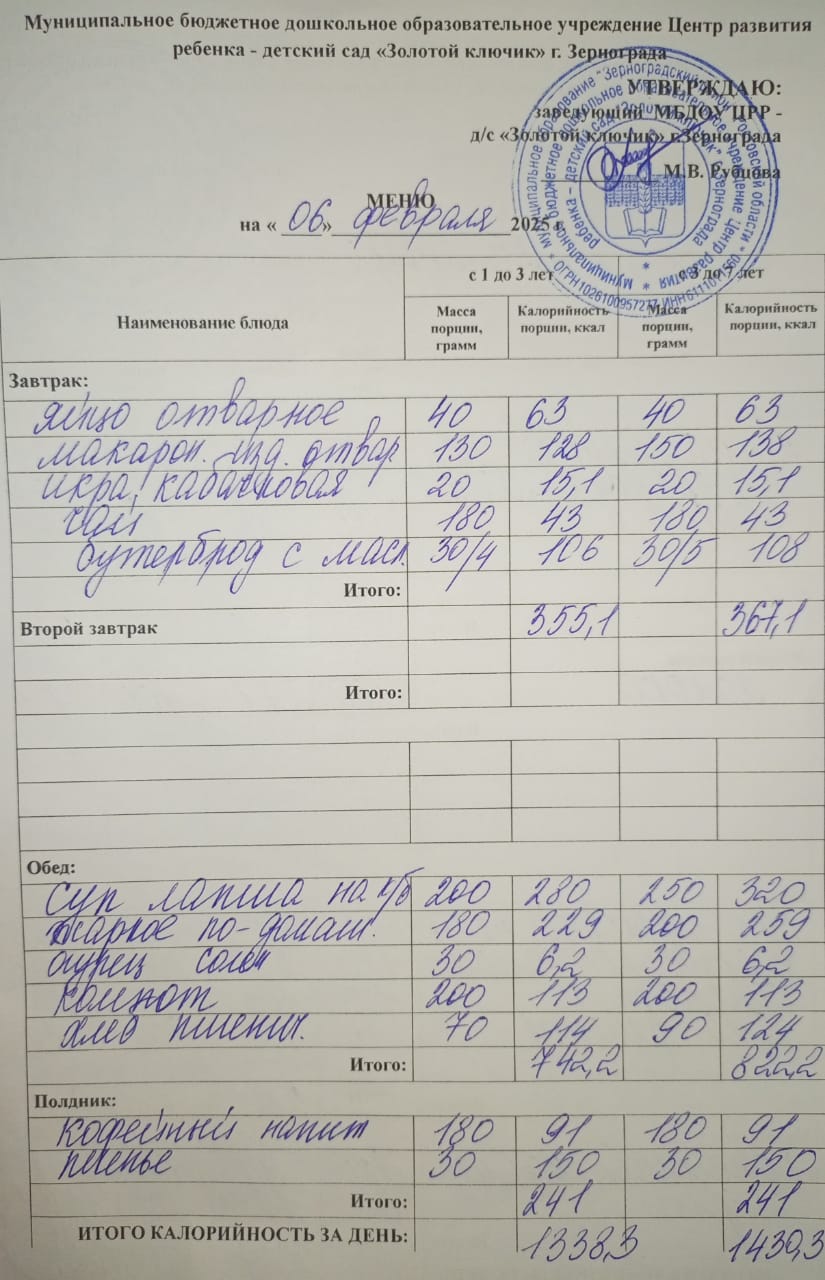 Муниципальное бюджетное дошкольное образовательное учреждение Центр развития
ребенка - детский сад «Золотой ключик» г. Зернограда
УТВЕРЖДАЮ:
заведующий МБДОУ ЦРР -
д/с «Золотой ключик» г.Зернограда
М.В. Рубцова
МЕНЮ
на « 06 » февраля 2025 г.
Наименование блюда
с 1 до 3 лет с 3 до 7 лет
Масса порции, грамм Калорийность порции, ккал Масса порции, грамм Калорийность порции, ккал
Завтрак:
яйцо отварное 40 63 40 63
макарон. изд. отвар 130 128 150 138
икра кабачковая 20 15,1 20 15,1
чай 180 43 180 43
бутерброд с масл. 30/4 106 30/5 108
Итого:
Второй завтрак 355,1 367,1
Итого:
Обед:
суп лапша на к/б 200 280 250 320
жаркое по-домаш. 180 229 200 259
огурец солен 30 6,2 30 6,2
компот 200 113 200 113
хлеб пшенич. 70 114 90 124
Итого: 742,2 822,2
Полдник:
кофейный напит 180 91 180 91
печенье 30 150 30 150
Итого: 241 241
ИТОГО КАЛОРИЙНОСТЬ ЗА ДЕНЬ: 1338,3 1430,3